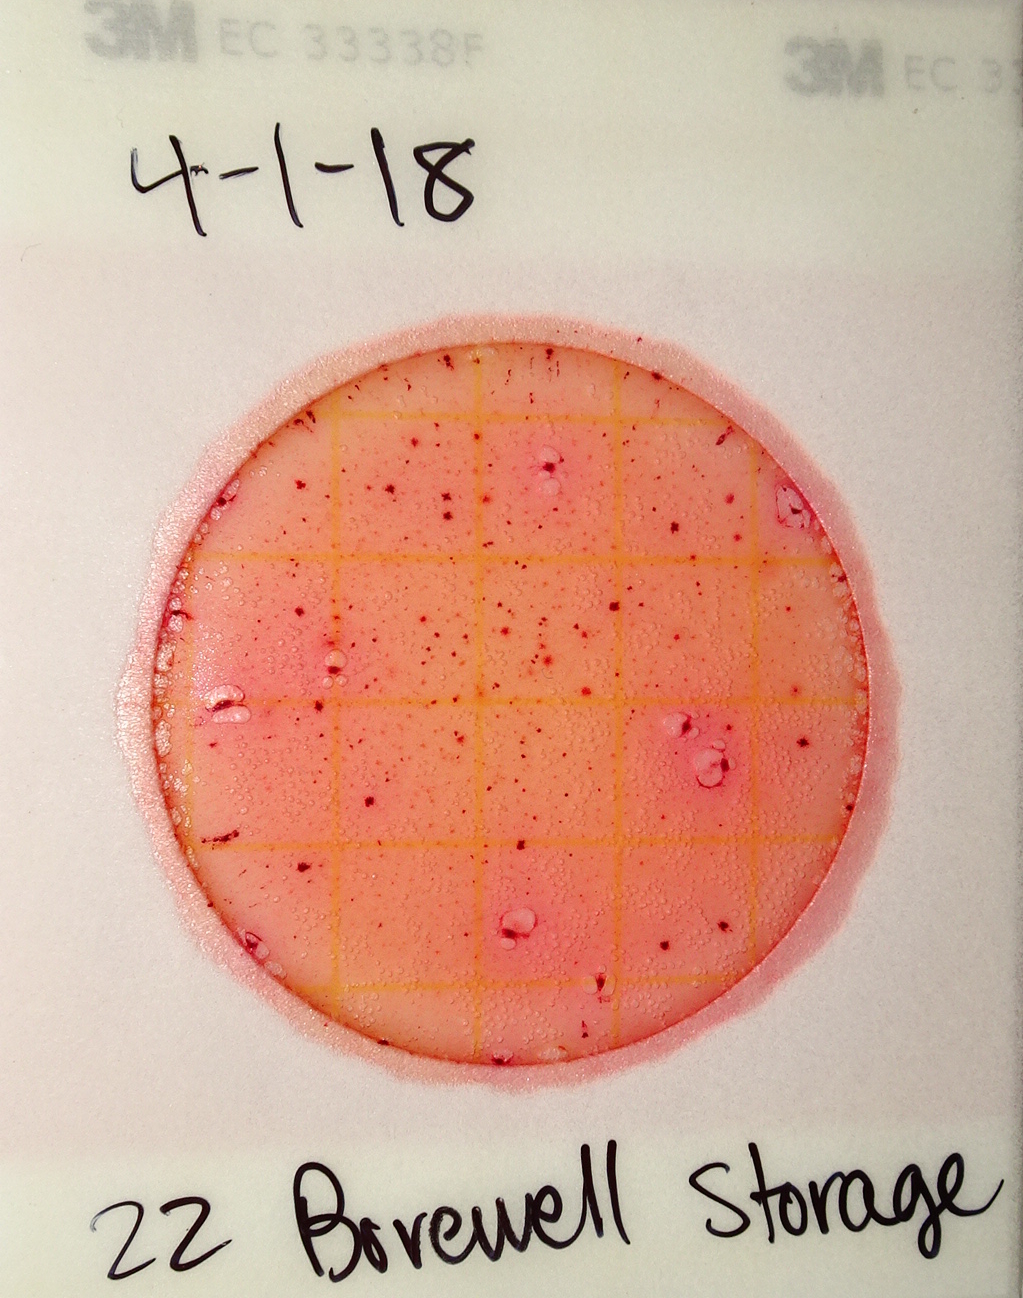 3M EC 33338F 3M EC 33
4-1-18
22 Borewell Storage